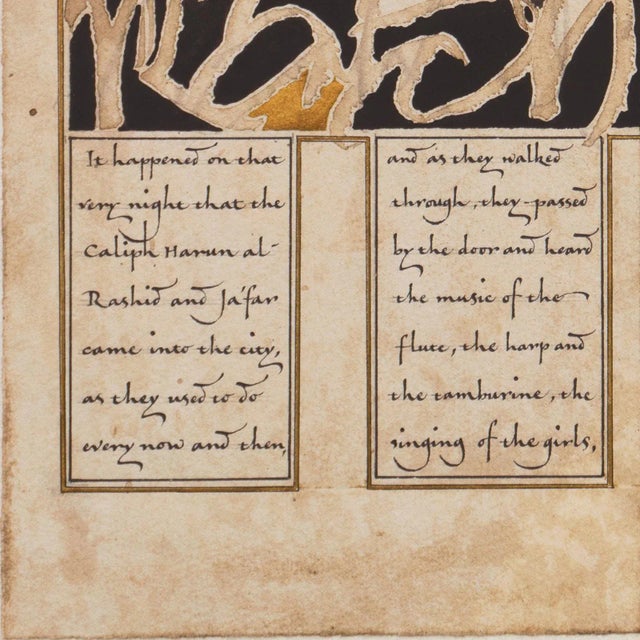 It happened on that
very night that the
Caliph Harun al-
Rashid and Ja'far
came into the city,
as they used to do
every now and then,
and as they walked
through, they passed
by the door and heard
the music of the
flute, the harp and
the tamburine, the
singing of the girls,